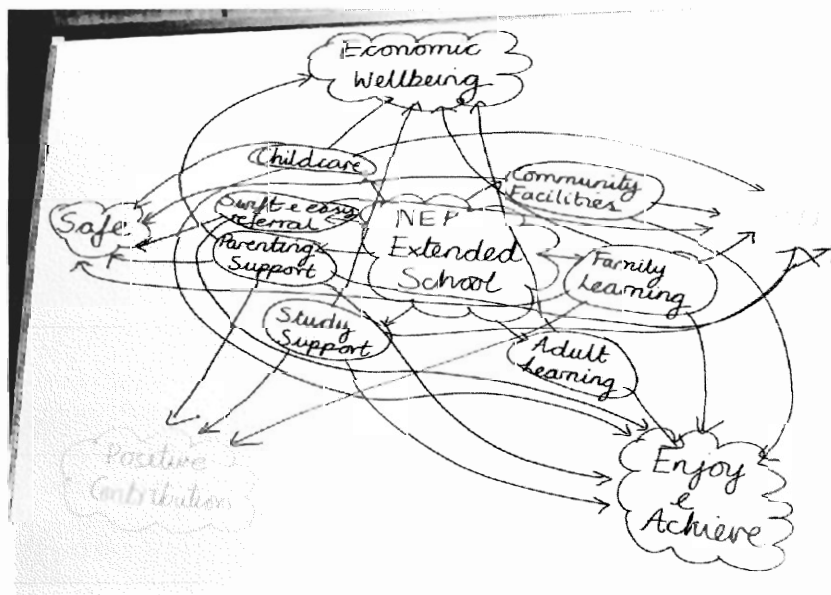 Economic
Wellbeing
Childcare
Community
Facilities
Safe
Swift & easy
referral
NEP
Extended
School
Parenting
Support
Family
Learning
Study
Support
Adult
Learning
Positive
Contribution
Enjoy
&
Achieve